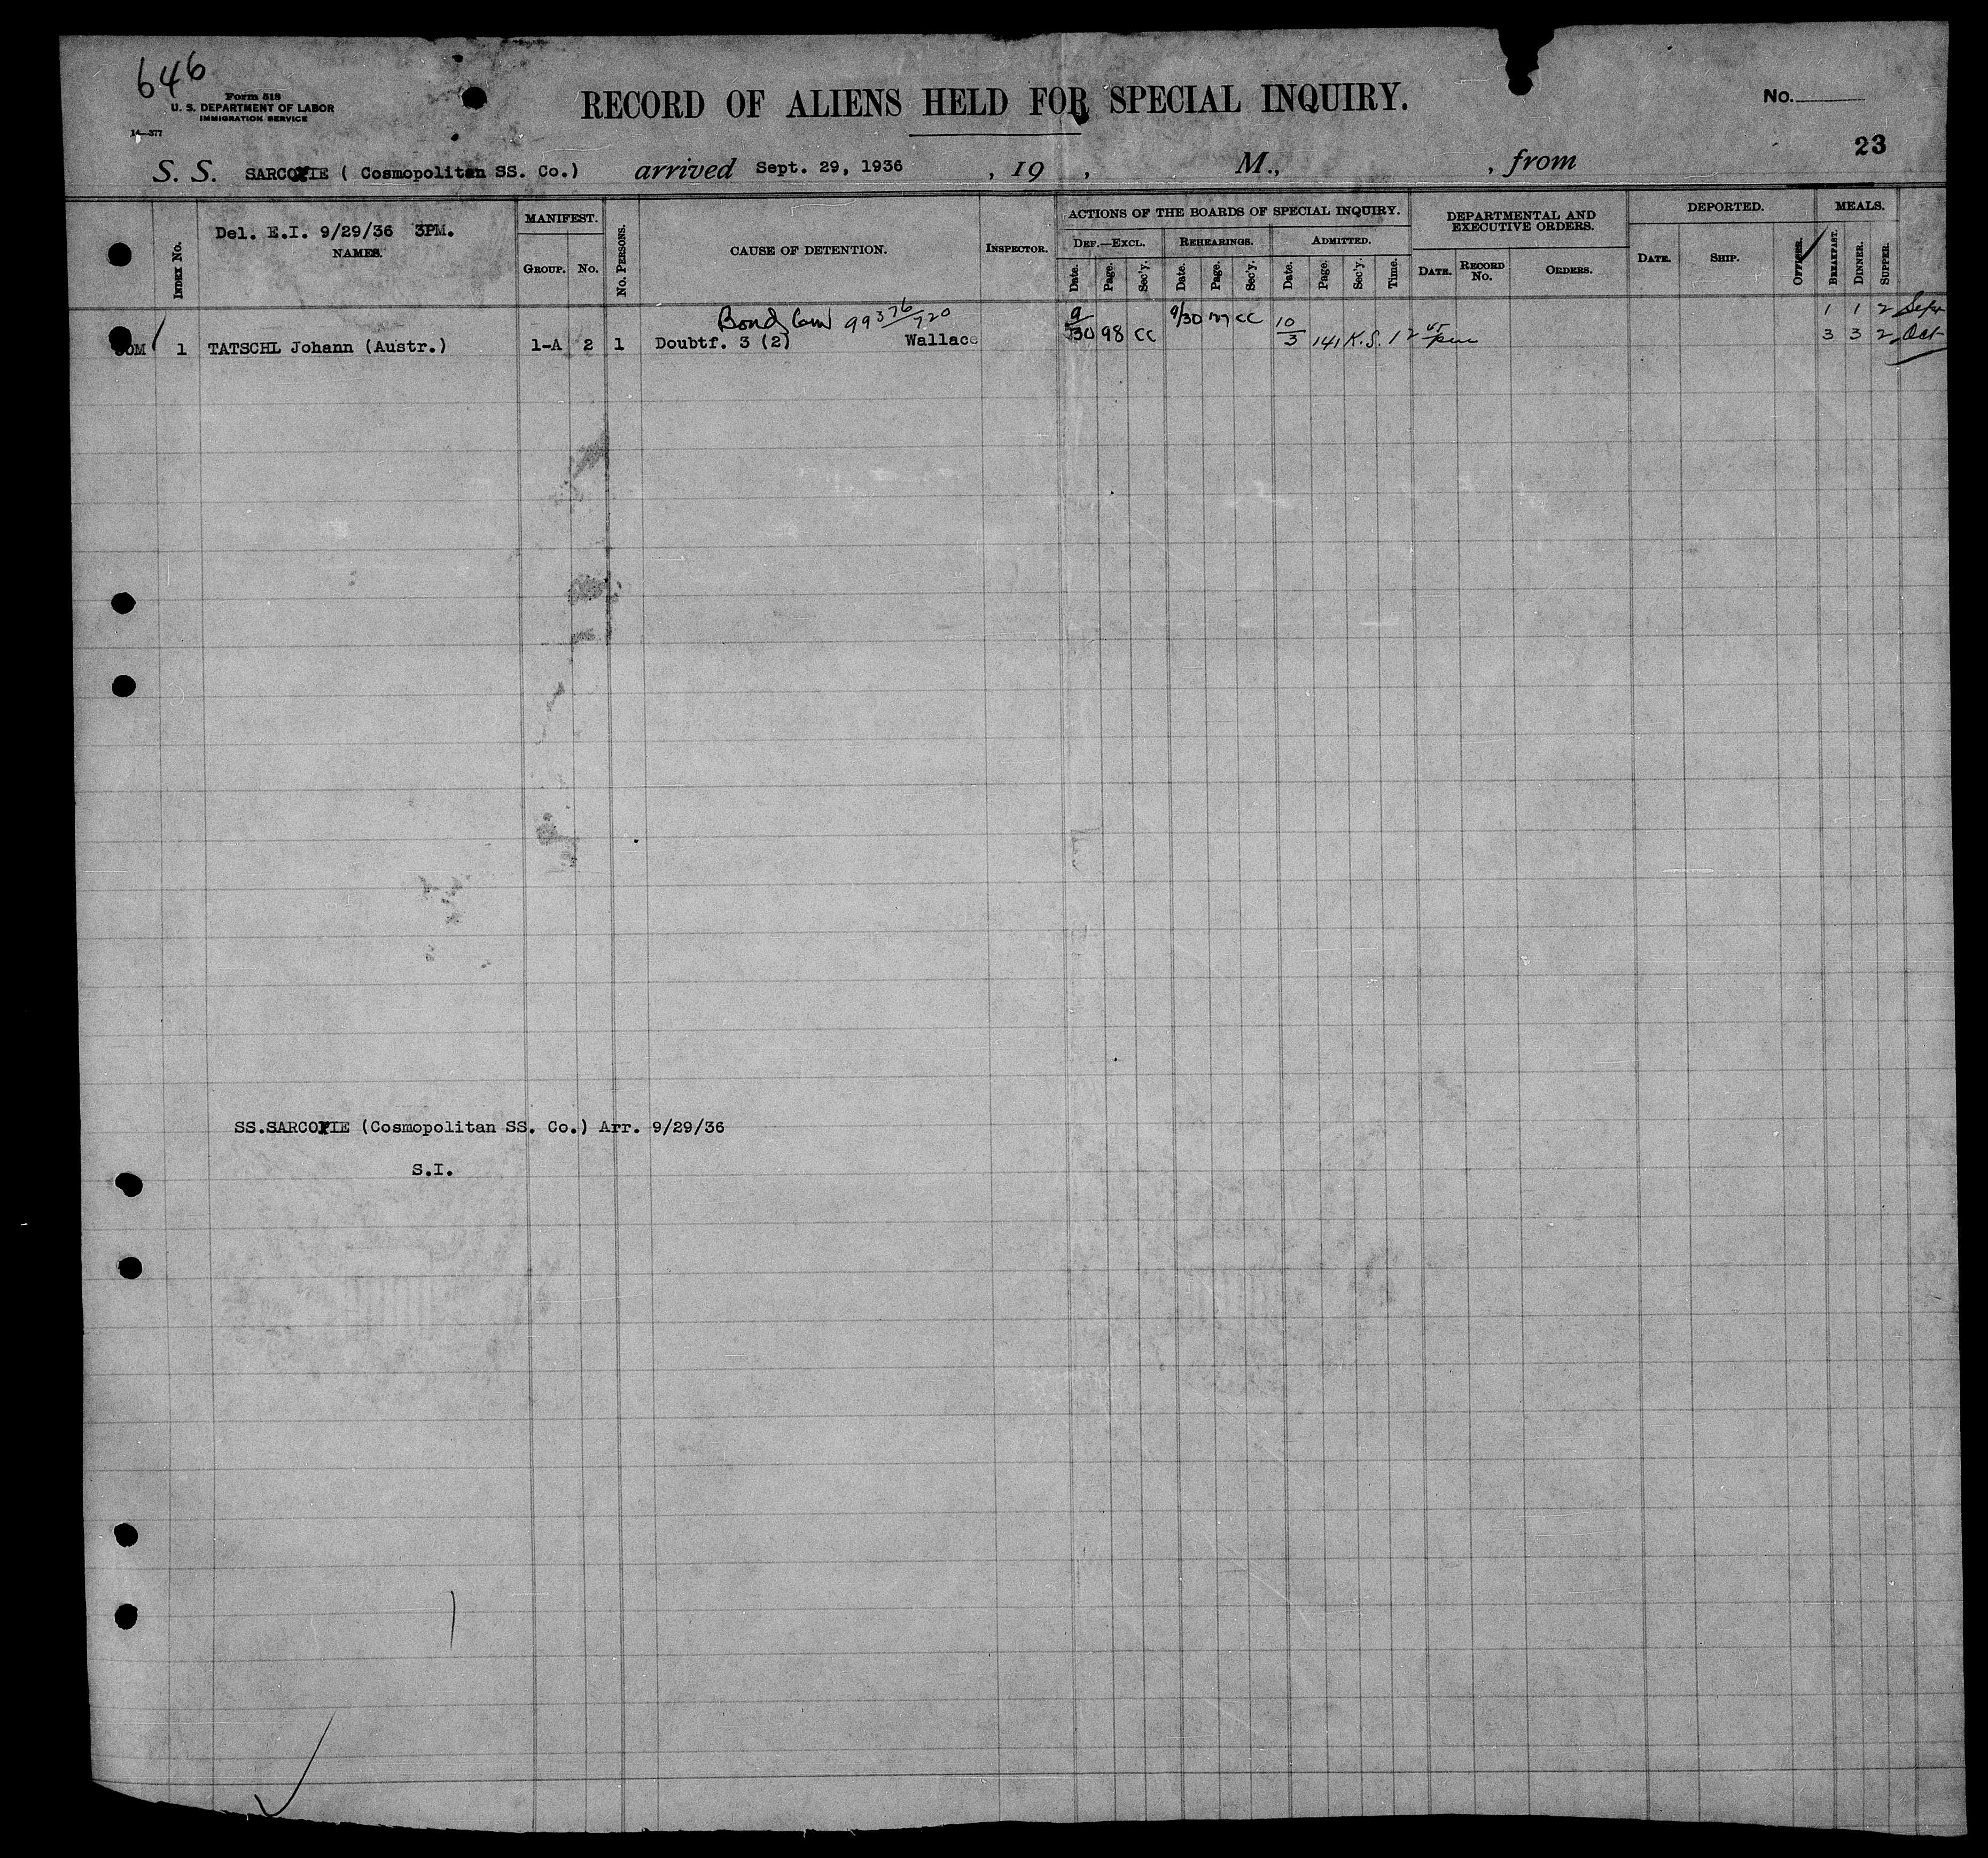 646
Form 518
U. S. DEPARTMENT OF LABOR
IMMIGRATION SERVICE
14—377
RECORD OF ALIENS HELD FOR SPECIAL INQUIRY.
No.
23
S. S. SARCOXIE ( Cosmopolitan SS. Co.) arrived Sept. 29, 1936 , 19 , M., , from
Del. E.I. 9/29/36 3PM.
INDEX No.
NAMES.
MANIFEST.
GROUP. No.
No. PERSONS.
CAUSE OF DETENTION.
INSPECTOR.
ACTIONS OF THE BOARDS OF SPECIAL INQUIRY.
DEF.—EXCL. REHEARINGS. ADMITTED.
Date. Page. Sec'y. Date. Page. Sec'y. Date. Page. Sec'y. Time.
DEPARTMENTAL AND
EXECUTIVE ORDERS.
DATE. RECORD No. ORDERS.
DEPORTED.
DATE. SHIP. OFFICER.
MEALS.
BREAKFAST. DINNER. SUPPER.
Bond 99376/720
1 1 2 Sept
1 TATSCHL Johann (Austr.) 1-A 2 1 Doubtf. 3 (2) Wallace 9/30 98 CC 9/30 CC 10/3 141 K.S. 12 45 pm 3 3 2 Oct
SS.SARCOXIE (Cosmopolitan SS. Co.) Arr. 9/29/36
S.I.